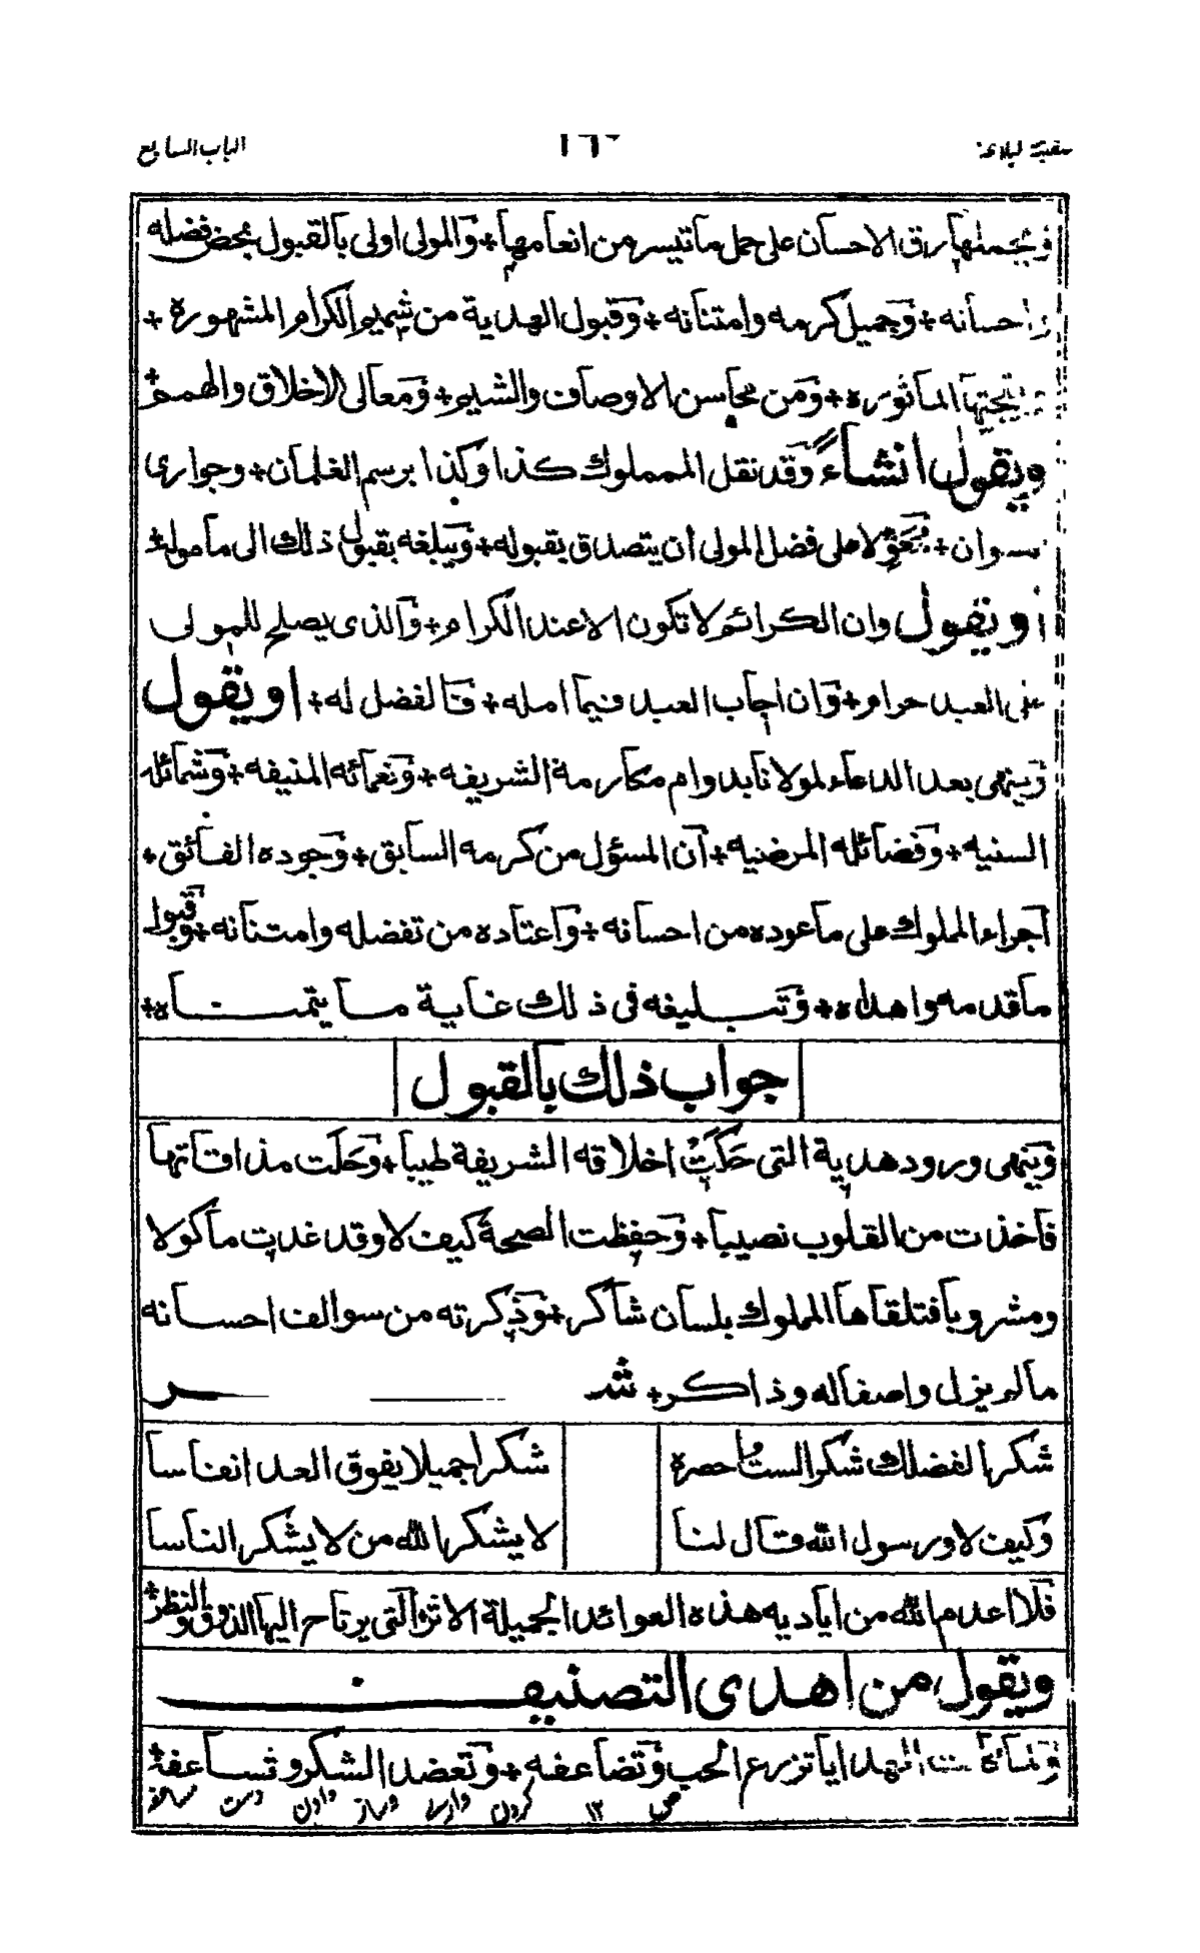 سفينة لبلاغة ١٦٠ الباب السابع
رق الاحسان على حمل ما تيسر من انعامها + والمولى اولى بالقبول بمحض فضله
واحسانه + وجميل كرمه وامتنانه + وقبول الهدية من شيم الكرام المشهورة +
المأثوره + ومن محاسن الاوصاف والشيم + ومعالى الاخلاق والهمم +
ويقول انشاء وقد نقل المملوك كذا وكذا برسم الغلمان + وجوارى
على فضل المولى أن يتصدق بقبوله + ويبلغه بقبول ذلك الى مأموله +
أو يقول وان الكرائم لا تكون الا عند الكرام + والذى يصلح للمولى
على العبد حرام + وان اجاب العبد فيما امله + فالفضل له + او يقول
وينهى بعد الدعاء لمولانا بدوام مكارمة الشريفه + ونعمائه المنيفه + وشمائله
السنيه + وفضائله المرضيه + أن المسؤل من كرمه السابق + وجوده الفائق +
اجراء المملوك على ما عوده من احسانه + واعتاده من تفضله وامتنانه + وقبول
ما قدمه واهداه + وتبليغه فى ذلك غاية ما يتمناه +
جواب ذلك بالقبول
وينهى ورود هدية التى حكت اخلاقه الشريفة طيبا + وحلت مذاقاتها
فأخذت من القلوب نصيبا + وحفظت الصحة كيف لا وقد غدت مأكولا
ومشروبا فتلقاها المملوك بلسان شاكر + وذكرته من سوالف احسانه
ما لم يزل واصفا له وذاكر + شعر
شكرا لفضلك شكرا لست احصره شكرا جميلا يفوق العد انفاسا
وكيف لا ورسول الله قال لنا لا يشكر الله من لا يشكر الناسا
فلا اعدم الله من اياديه هذه العوائد الجميلة الاثر التى يرتاح اليها الذوق والنظر +
ويقول من اهدى التصنيف
الهدايا تزرع الحب وتضاعفه + وتعضد الشكر وتساعفه +
ص ١٢ كردن